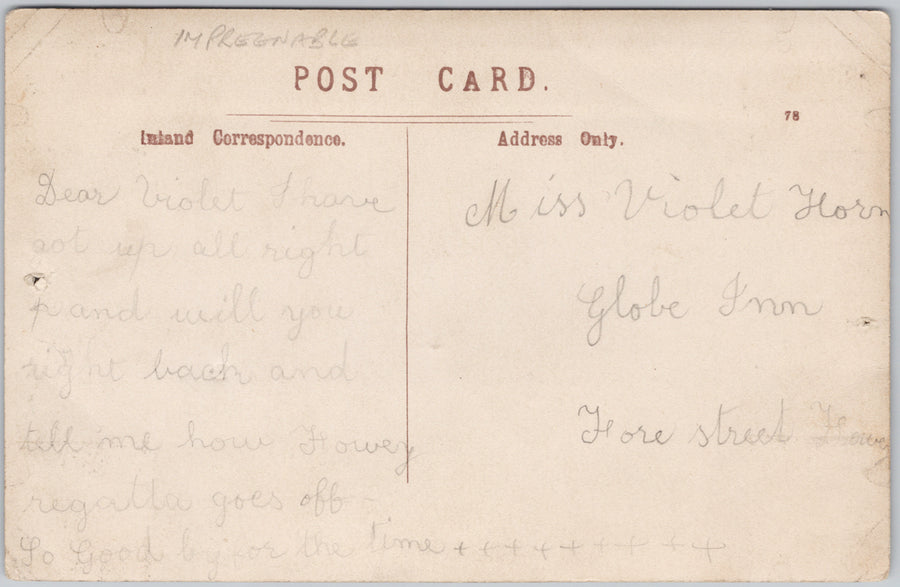 IMPREGNABLE
POST CARD.
78
Inland Correspondence.
Address Only.
Dear Violet I have
got up all right
and will you
right back and
tell me how Fowey
regatta goes off -
So Good by for the time + + + + + + + + +
Miss Violet Horn
Globe Inn
Fore street Fowey